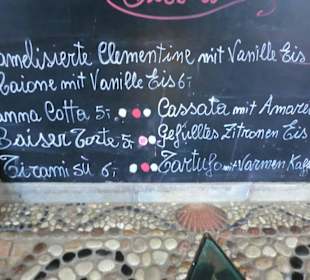 amelisierte Clementine mit Vanille Eis
Maione mit Vanille Eis 6,-
anna Cotta 5,- Cassata mit Amare
Baiser Torte 5,- Gefülltes Zitronen Eis
Tirami sù 6,- Tartufo mit Warmen Kaff